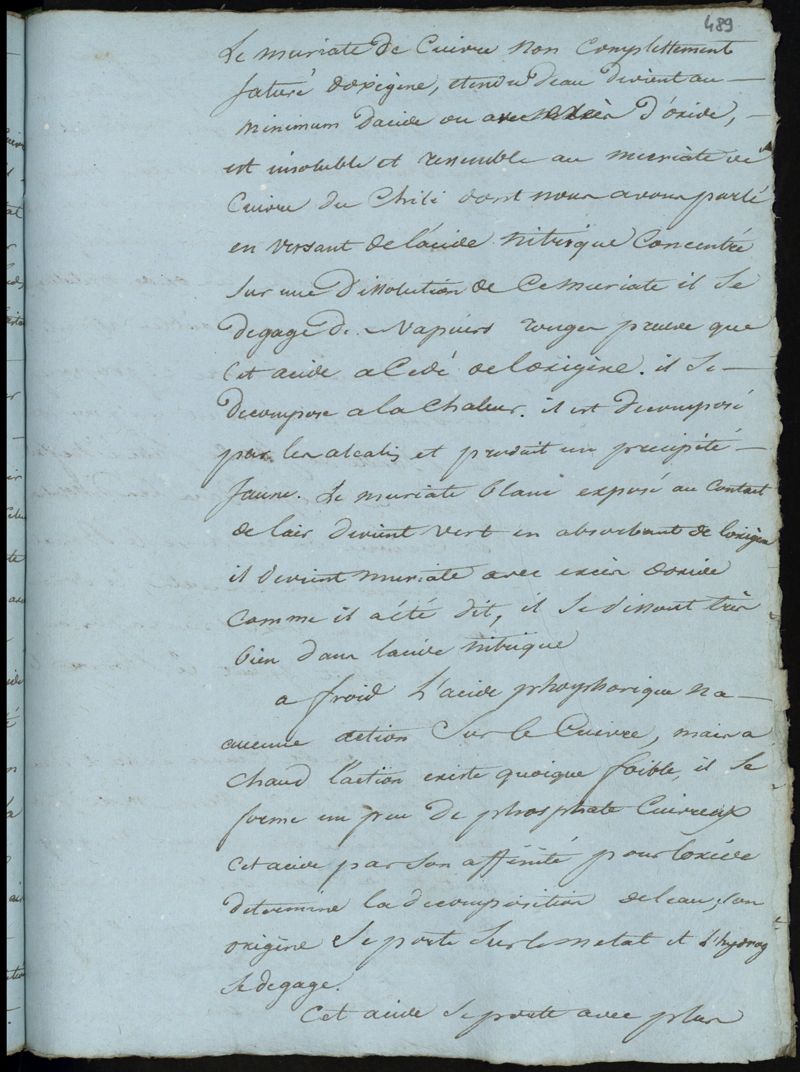 489
Le muriate de Cuivre non Complettement
saturé doxigene, etendu deau devient au —
minimum dacide ou avec excès d'oxide, —
est insoluble et resemble au muriate de
Cuivre du Chili dont nous avons parlé
en versant de lacide nitrique Concentré
sur une dissolution de Ce muriate il se
degage de vapeurs rouges preuve que
Cet acide a Cedé de loxigène. il se —
decompose a la Chaleur. il est decomposé
par les alcalis et produit un precipité —
Jaune. Le muriate blanc exposé au Contact
de lair devient vert en absorbant de loxigen
il devient muriate avec excès doxide
Comme il a été dit, il se dissout très
bien dans lacide nitrique
a froid L'acide phosphorique na —
aucune action sur le Cuivre, mais a
Chaud l'action existe quoique foible, il se
forme un peu de phosphate Cuivreux
Cet acide par son affinité pour loxide
determine la decomposition de leau, son
oxigène se porte sur le metal et l'hydrog
se degage.
Cet acide se porte avec plus